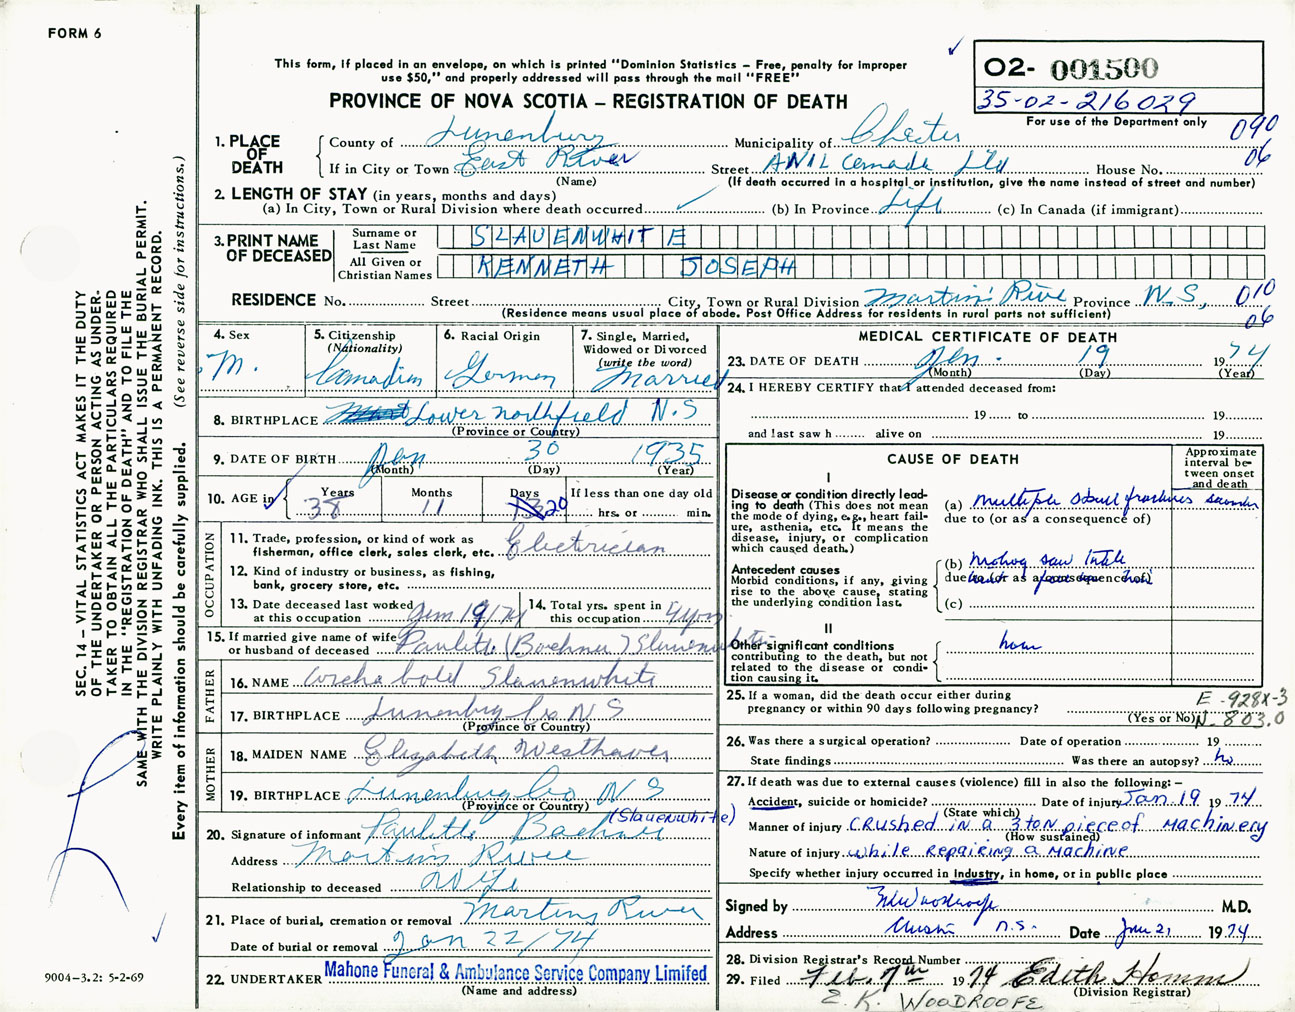 FORM 6
This form, if placed in an envelope, on which is printed "Dominion Statistics – Free, penalty for improper
use $50," and properly addressed will pass through the mail "FREE"
PROVINCE OF NOVA SCOTIA – REGISTRATION OF DEATH
02- 001500
35-02-216029
For use of the Department only
090
06
1. PLACE OF DEATH
County of Lunenburg Municipality of Chester
If in City or Town East River Street ANIL Canada Ltd House No.
(Name) (If death occurred in a hospital or institution, give the name instead of street and number)
2. LENGTH OF STAY (in years, months and days)
(a) In City, Town or Rural Division where death occurred ✓ (b) In Province Life (c) In Canada (if immigrant)
3. PRINT NAME OF DECEASED
Surname or Last Name SLAUENWHITE
All Given or Christian Names KENNETH JOSEPH
RESIDENCE No. Street City, Town or Rural Division Martins River Province N.S, 010
(Residence means usual place of abode. Post Office Address for residents in rural parts not sufficient)
06
4. Sex
M.
5. Citizenship
(Nationality)
Canadian
6. Racial Origin
German
7. Single, Married,
Widowed or Divorced
(write the word)
Married
8. BIRTHPLACE Lower Northfield N.S
(Province or Country)
9. DATE OF BIRTH Jan 30 1935
(Month) (Day) (Year)
10. AGE in
Years Months Days If less than one day old
38 11 20 hrs. or min.
OCCUPATION
11. Trade, profession, or kind of work as
fisherman, office clerk, sales clerk, etc. Electrician
12. Kind of industry or business, as fishing,
bank, grocery store, etc.
13. Date deceased last worked
at this occupation Jan 19/74
14. Total yrs. spent in
this occupation 4 yrs
15. If married give name of wife
or husband of deceased Paulette (Bachman) Slauenwhite
FATHER
16. NAME Archabold Slauenwhite
17. BIRTHPLACE Lunenburg Co N S
(Province or Country)
MOTHER
18. MAIDEN NAME Elizabeth Westhaver
19. BIRTHPLACE Lunenburg Co N S
(Province or Country)
(Slauenwhite)
20. Signature of informant Paulette
Address Martins River
Relationship to deceased Wife
21. Place of burial, cremation or removal Martins River
Date of burial or removal Jan 22/74
22. UNDERTAKER Mahone Funeral & Ambulance Service Company Limited
(Name and address)
MEDICAL CERTIFICATE OF DEATH
23. DATE OF DEATH Jan. 19 1974
(Month) (Day) (Year)
24. I HEREBY CERTIFY that I attended deceased from:
19 to 19
and last saw h alive on 19
CAUSE OF DEATH
Approximate
interval be-
tween onset
and death
I
Disease or condition directly lead-
ing to death (This does not mean
the mode of dying, e.g., heart fail-
ure, asthenia, etc. It means the
disease, injury, or complication
which caused death.)
(a) multiple skull fractures
due to (or as a consequence of)
Antecedent causes
Morbid conditions, if any, giving
rise to the above cause, stating
the underlying condition last.
(b)
due to (or as a consequence of)
(c)
II
Other significant conditions
contributing to the death, but not
related to the disease or condi-
tion causing it.
none
25. If a woman, did the death occur either during
pregnancy or within 90 days following pregnancy?
(Yes or No)
E -928X-3
N- 803.0
26. Was there a surgical operation? Date of operation 19
State findings Was there an autopsy? no
27. If death was due to external causes (violence) fill in also the following: –
Accident, suicide or homicide? Date of injury Jan 19 1974
(State which)
Manner of injury CRUSHED IN A 3 TON piece of MACHINERY
(How sustained)
Nature of injury while REPAIRING a MACHINE
Specify whether injury occurred in industry, in home, or in public place
Signed by M.D.
Address N.S. Date Jan 21 1974
28. Division Registrar's Record Number
29. Filed Feb. 7th 1974 Edith
(Division Registrar)
E. K. WOODROOFE
SEC. 14 – VITAL STATISTICS ACT MAKES IT THE DUTY
OF THE UNDERTAKER OR PERSON ACTING AS UNDER-
TAKER TO OBTAIN ALL THE PARTICULARS REQUIRED
IN THE "REGISTRATION OF DEATH" AND TO FILE THE
SAME WITH THE DIVISION REGISTRAR WHO SHALL ISSUE THE BURIAL PERMIT.
WRITE PLAINLY WITH UNFADING INK. THIS IS A PERMANENT RECORD.
Every item of information should be carefully supplied. (See reverse side for instructions.)
9004-3.2: 5-2-69